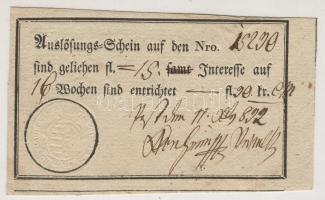 Auslösungs-Schein auf den Nro. 15230
sind geliehen fl. 15. samt Interesse auf
16 Wochen sind entrichtet — fl 30 kr.
Pest den 11. 832